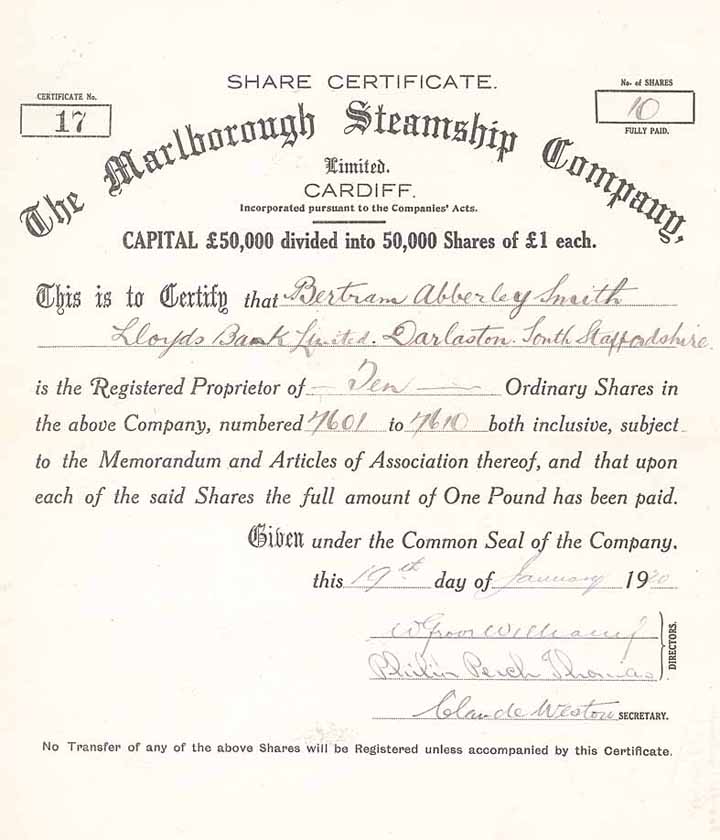 SHARE CERTIFICATE.
CERTIFICATE No.
17
No. of SHARES
10
FULLY PAID.
The Marlborough Steamship Company,
Limited.
CARDIFF.
Incorporated pursuant to the Companies' Acts.
CAPITAL £50,000 divided into 50,000 Shares of £1 each.
This is to Certify that Bertram Abberley Smith
Lloyds Bank Limited. Darlaston. South Staffordshire.
is the Registered Proprietor of Ten Ordinary Shares in
the above Company, numbered 7601 to 7610 both inclusive, subject
to the Memorandum and Articles of Association thereof, and that upon
each of the said Shares the full amount of One Pound has been paid.
Given under the Common Seal of the Company.
this 19th day of January 1920
DIRECTORS.
Philip Thomas
Claude Weston SECRETARY.
No Transfer of any of the above Shares will be Registered unless accompanied by this Certificate.